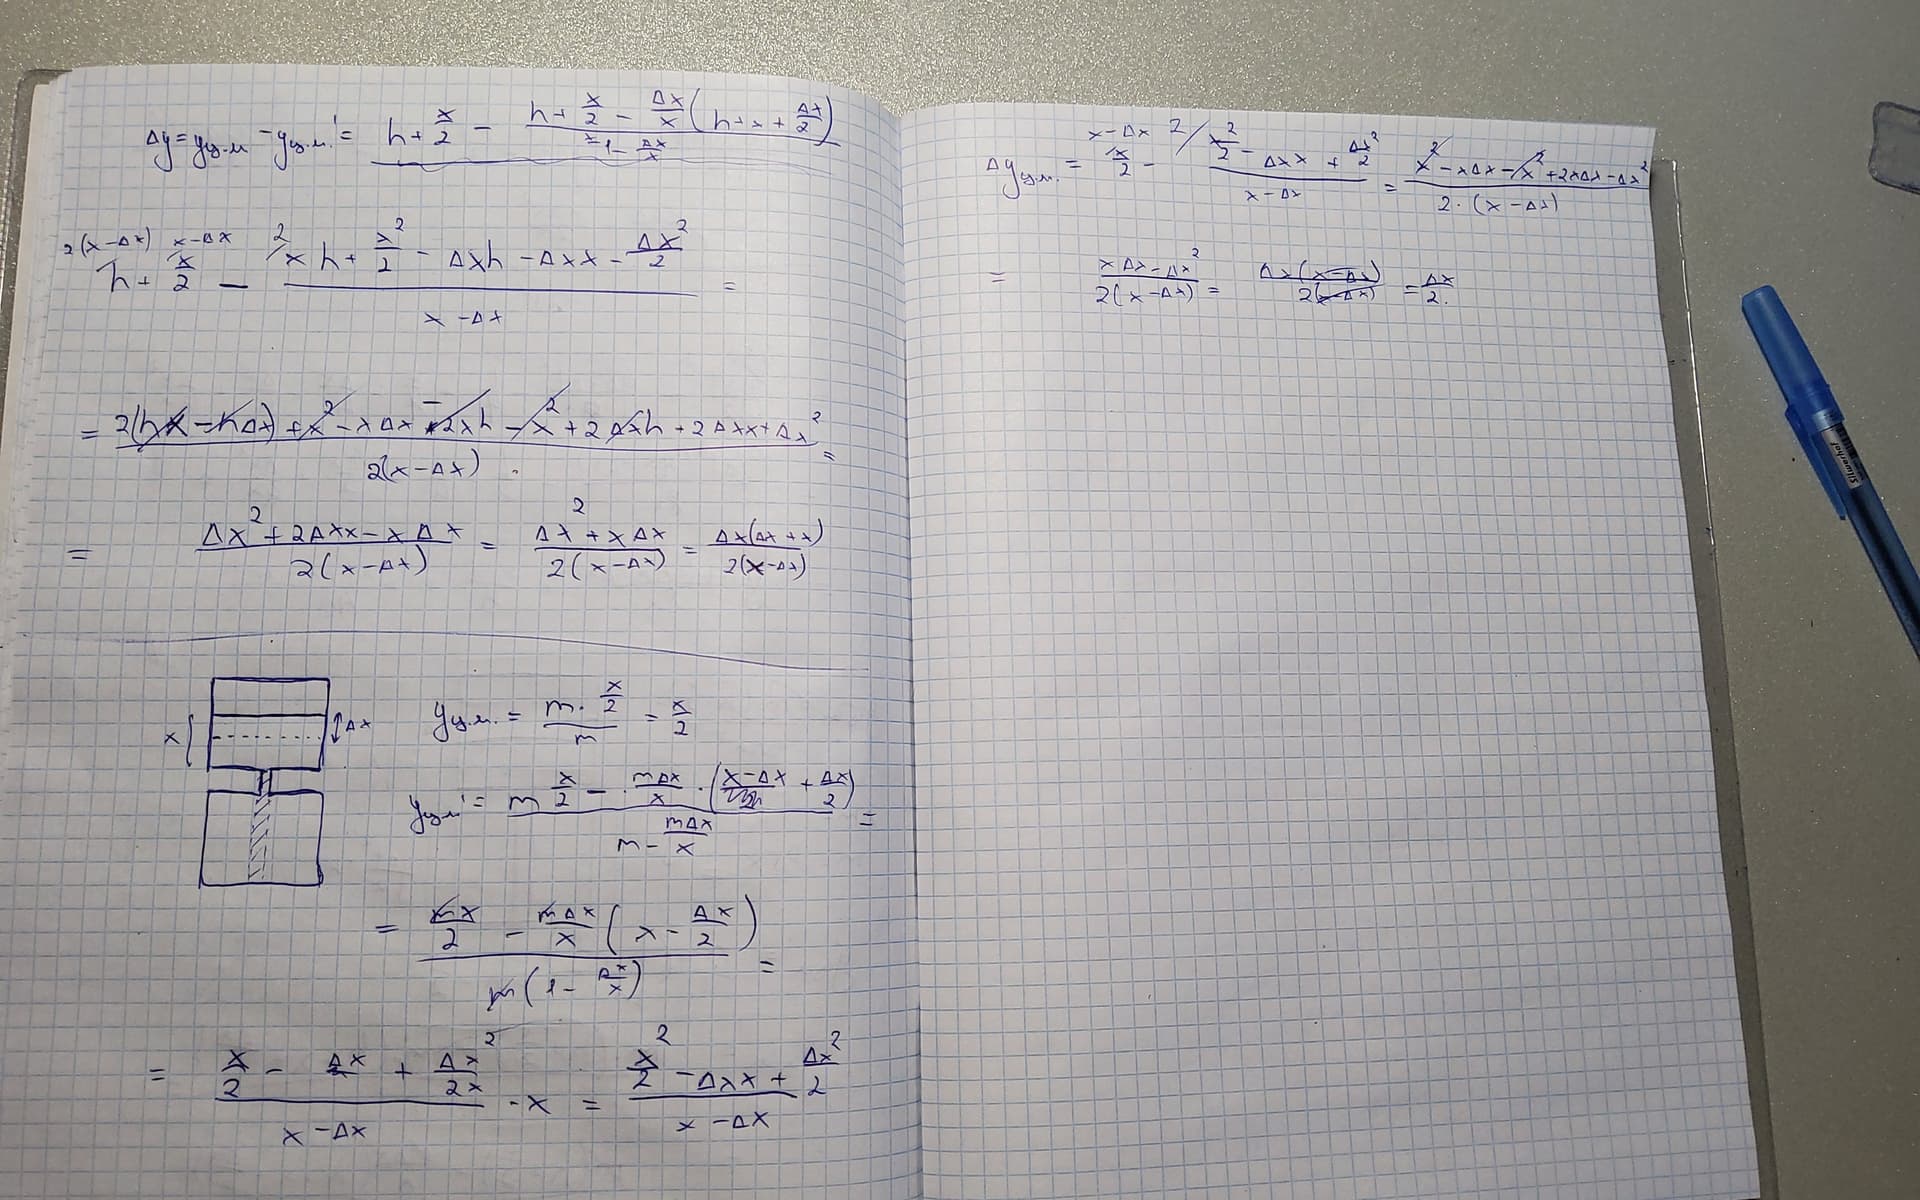 Δy = yц.м - yц.м.' = h + x/2 - (h + x/2 - Δx/x (h + x + Δx/2)) / (1 - Δx/x)
2(x-Δx) x-Δx 2
h + x/2 - (xh + x²/2 - Δxh - Δxx - Δx²/2) / (x - Δx) =
= (2(hx - hΔx) + x² - xΔx - 2xh - x² + 2Δxh + 2Δxx + Δx²) / 2(x-Δx) =
= (Δx² + 2Δxx - xΔx) / 2(x-Δx) = (Δx² + xΔx) / 2(x-Δx) = Δx(Δx + x) / 2(x-Δx)
x Δx
yц.м. = (m · x/2) / m = x/2
yц.м' = (m x/2 - · mΔx/x · (x-Δx + Δx/2)) / (m - mΔx/x) =
= (mx/2 - mΔx/x (x - Δx/2)) / m(1 - Δx/x) =
= (x/2 - Δx + Δx²/2x) / (x - Δx) · x = (x²/2 - Δxx + Δx²/2) / (x - Δx)
x-Δx 2
Δyц.м. = x/2 - (x²/2 - Δxx + Δx²/2) / (x-Δx) = (x² - xΔx - x² + 2xΔx - Δx²) / 2·(x-Δx)
= (xΔx - Δx²) / 2(x-Δx) = Δx(x-Δx) / 2(x-Δx) = Δx/2.
Silwerhof